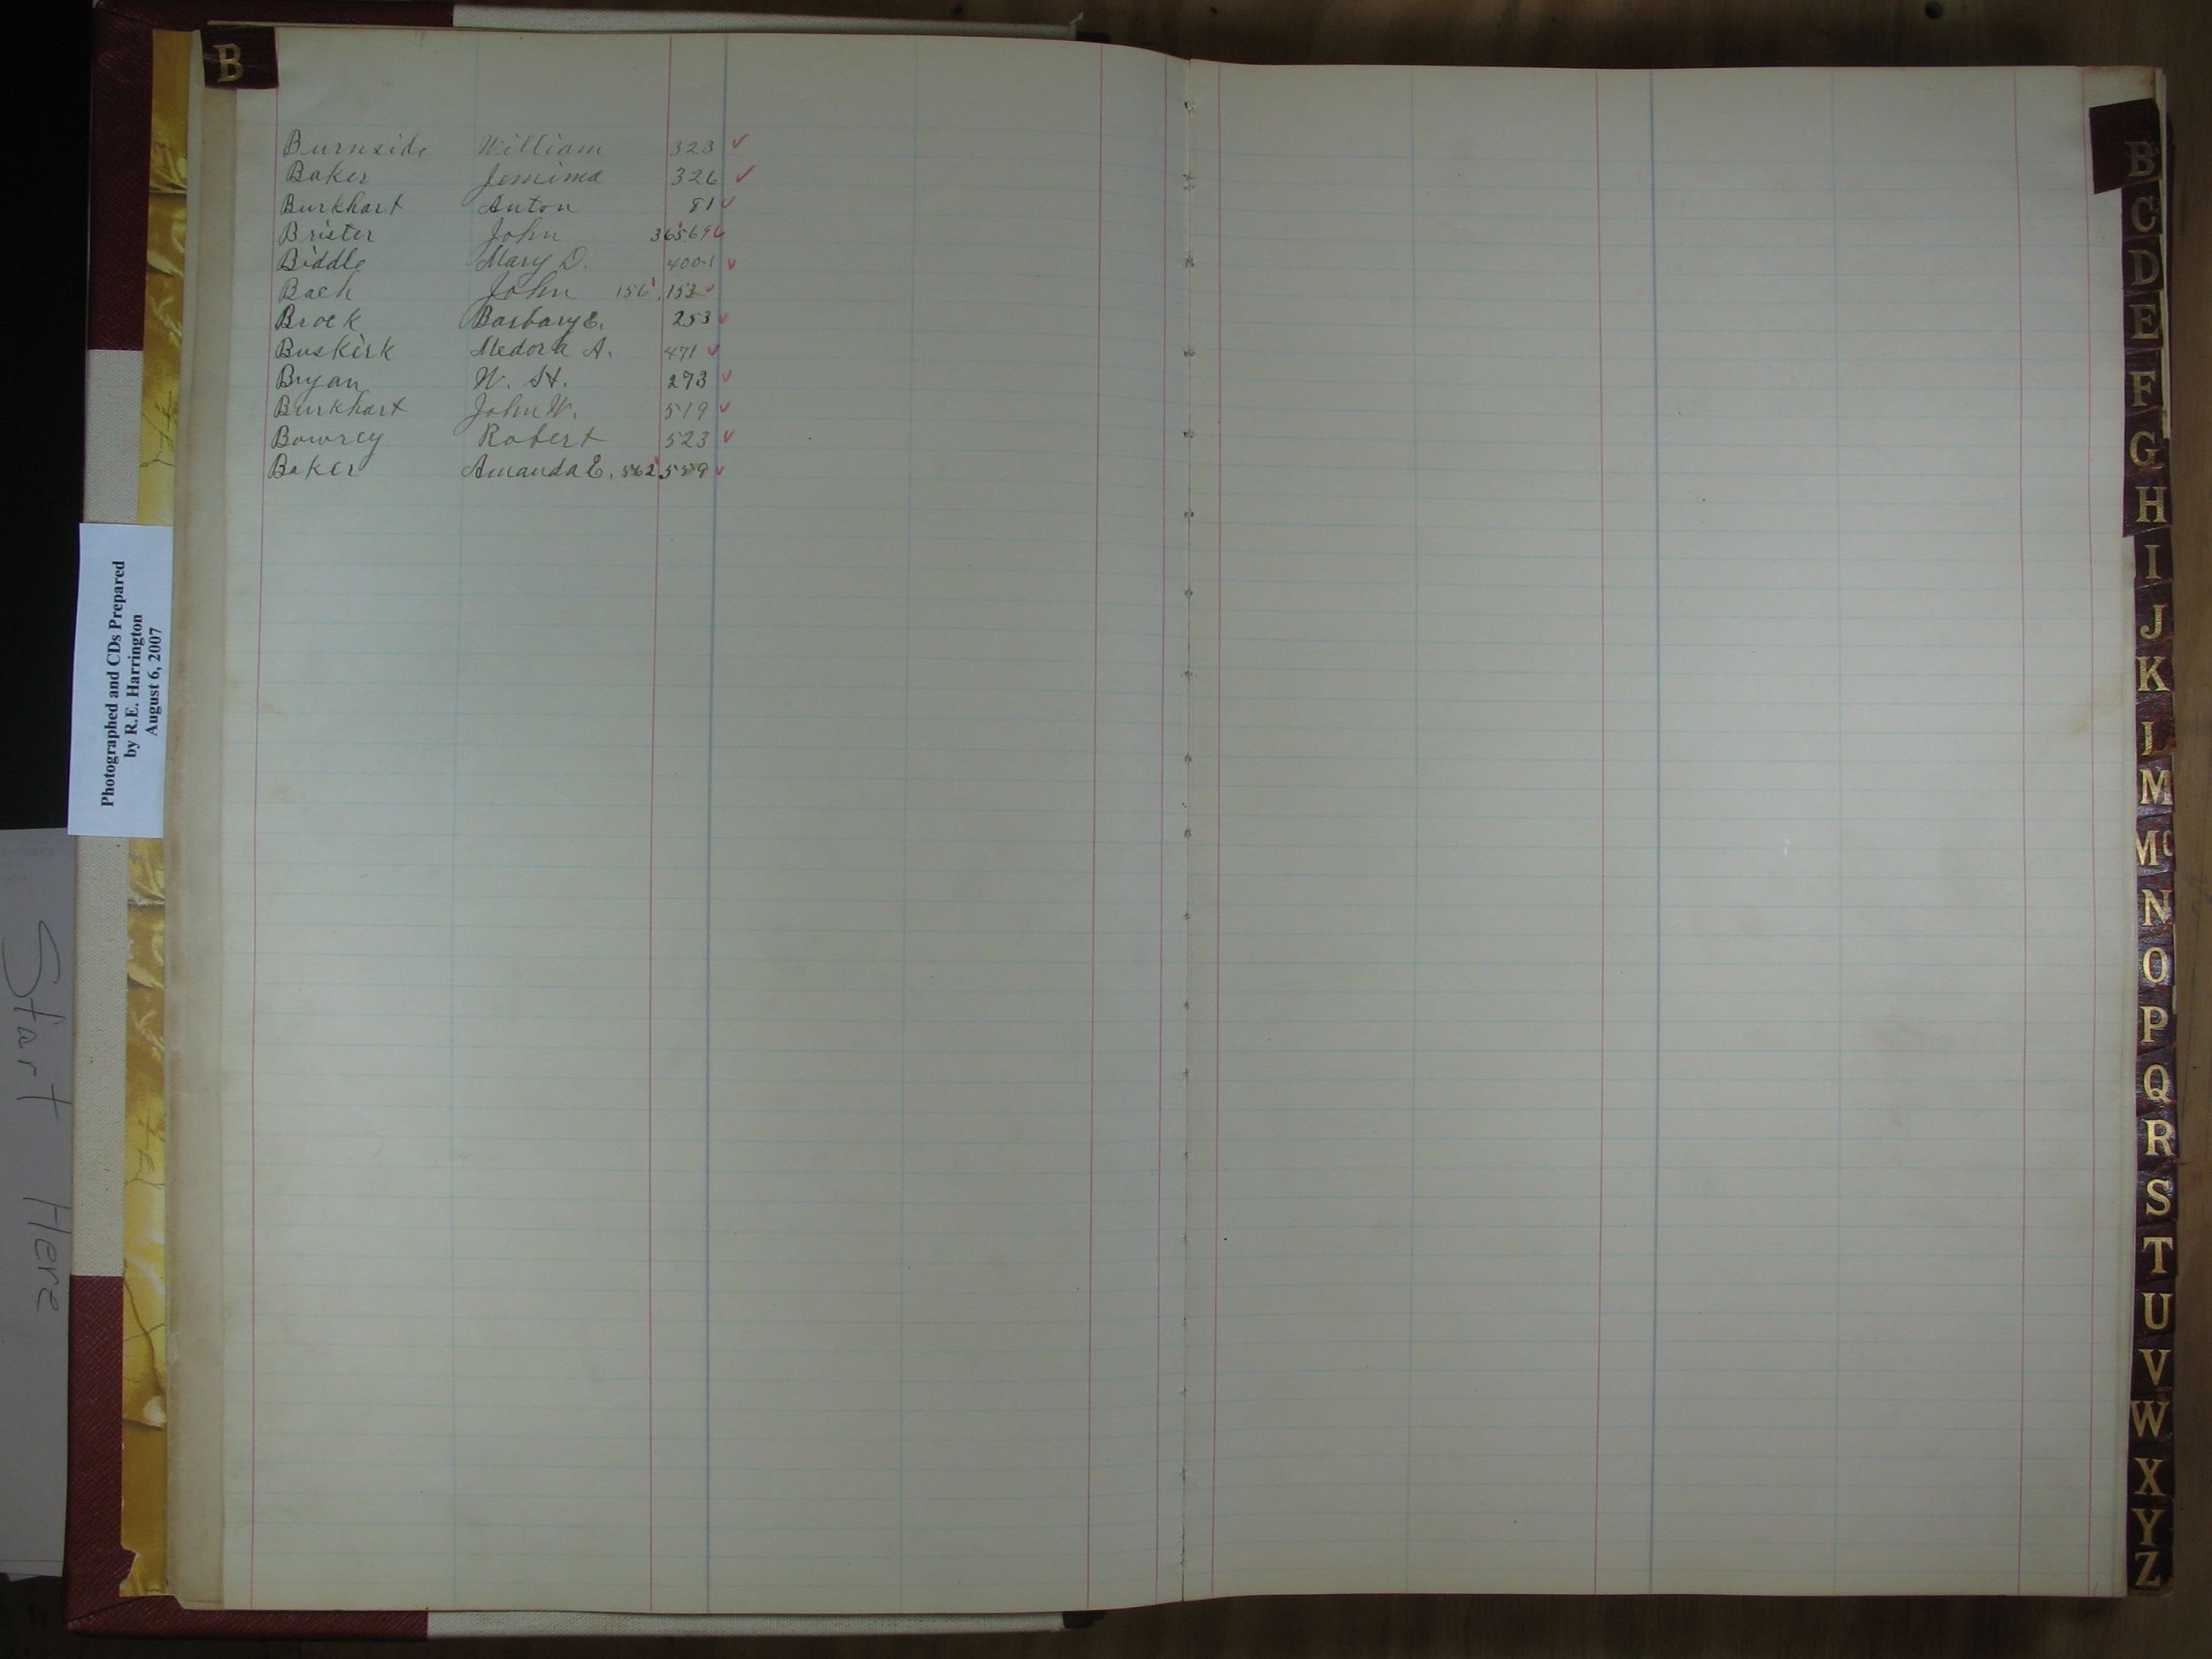 B
Burnside William 323 ✓
Baker Jemima 326 ✓
Burkhart Anton 81 ✓
Brister John 365 69 ✓
Biddle Mary D. 400-1 ✓
Bach John 156, 152 ✓
Brock Barbary E. 253 ✓
Buskirk Medora A. 471 ✓
Bryan W. H. 273 ✓
Burkhart John W. 519 ✓
Bowrey Robert 523 ✓
Baker Amanda E. 562, 559 ✓
Photographed and CDs Prepared
by R.E. Harrington
August 6, 2007
Start Here
B
C
D
E
F
G
H
I
J
K
L
M
Mc
N
O
P
Q
R
S
T
U
V
W
X
Y
Z